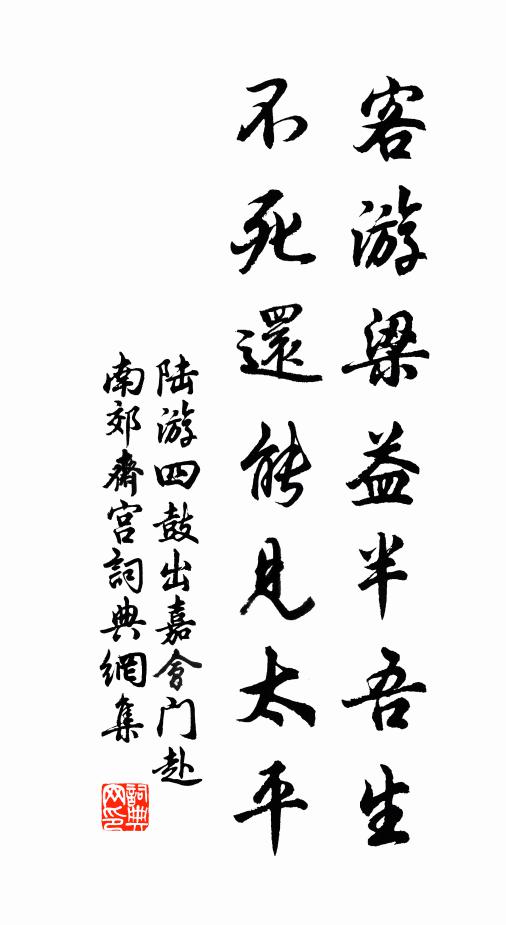 客游梁益半吾生
不死還能見太平
陆游四鼓出嘉會门赴
南郊齋宫詞典網集
詞典网印